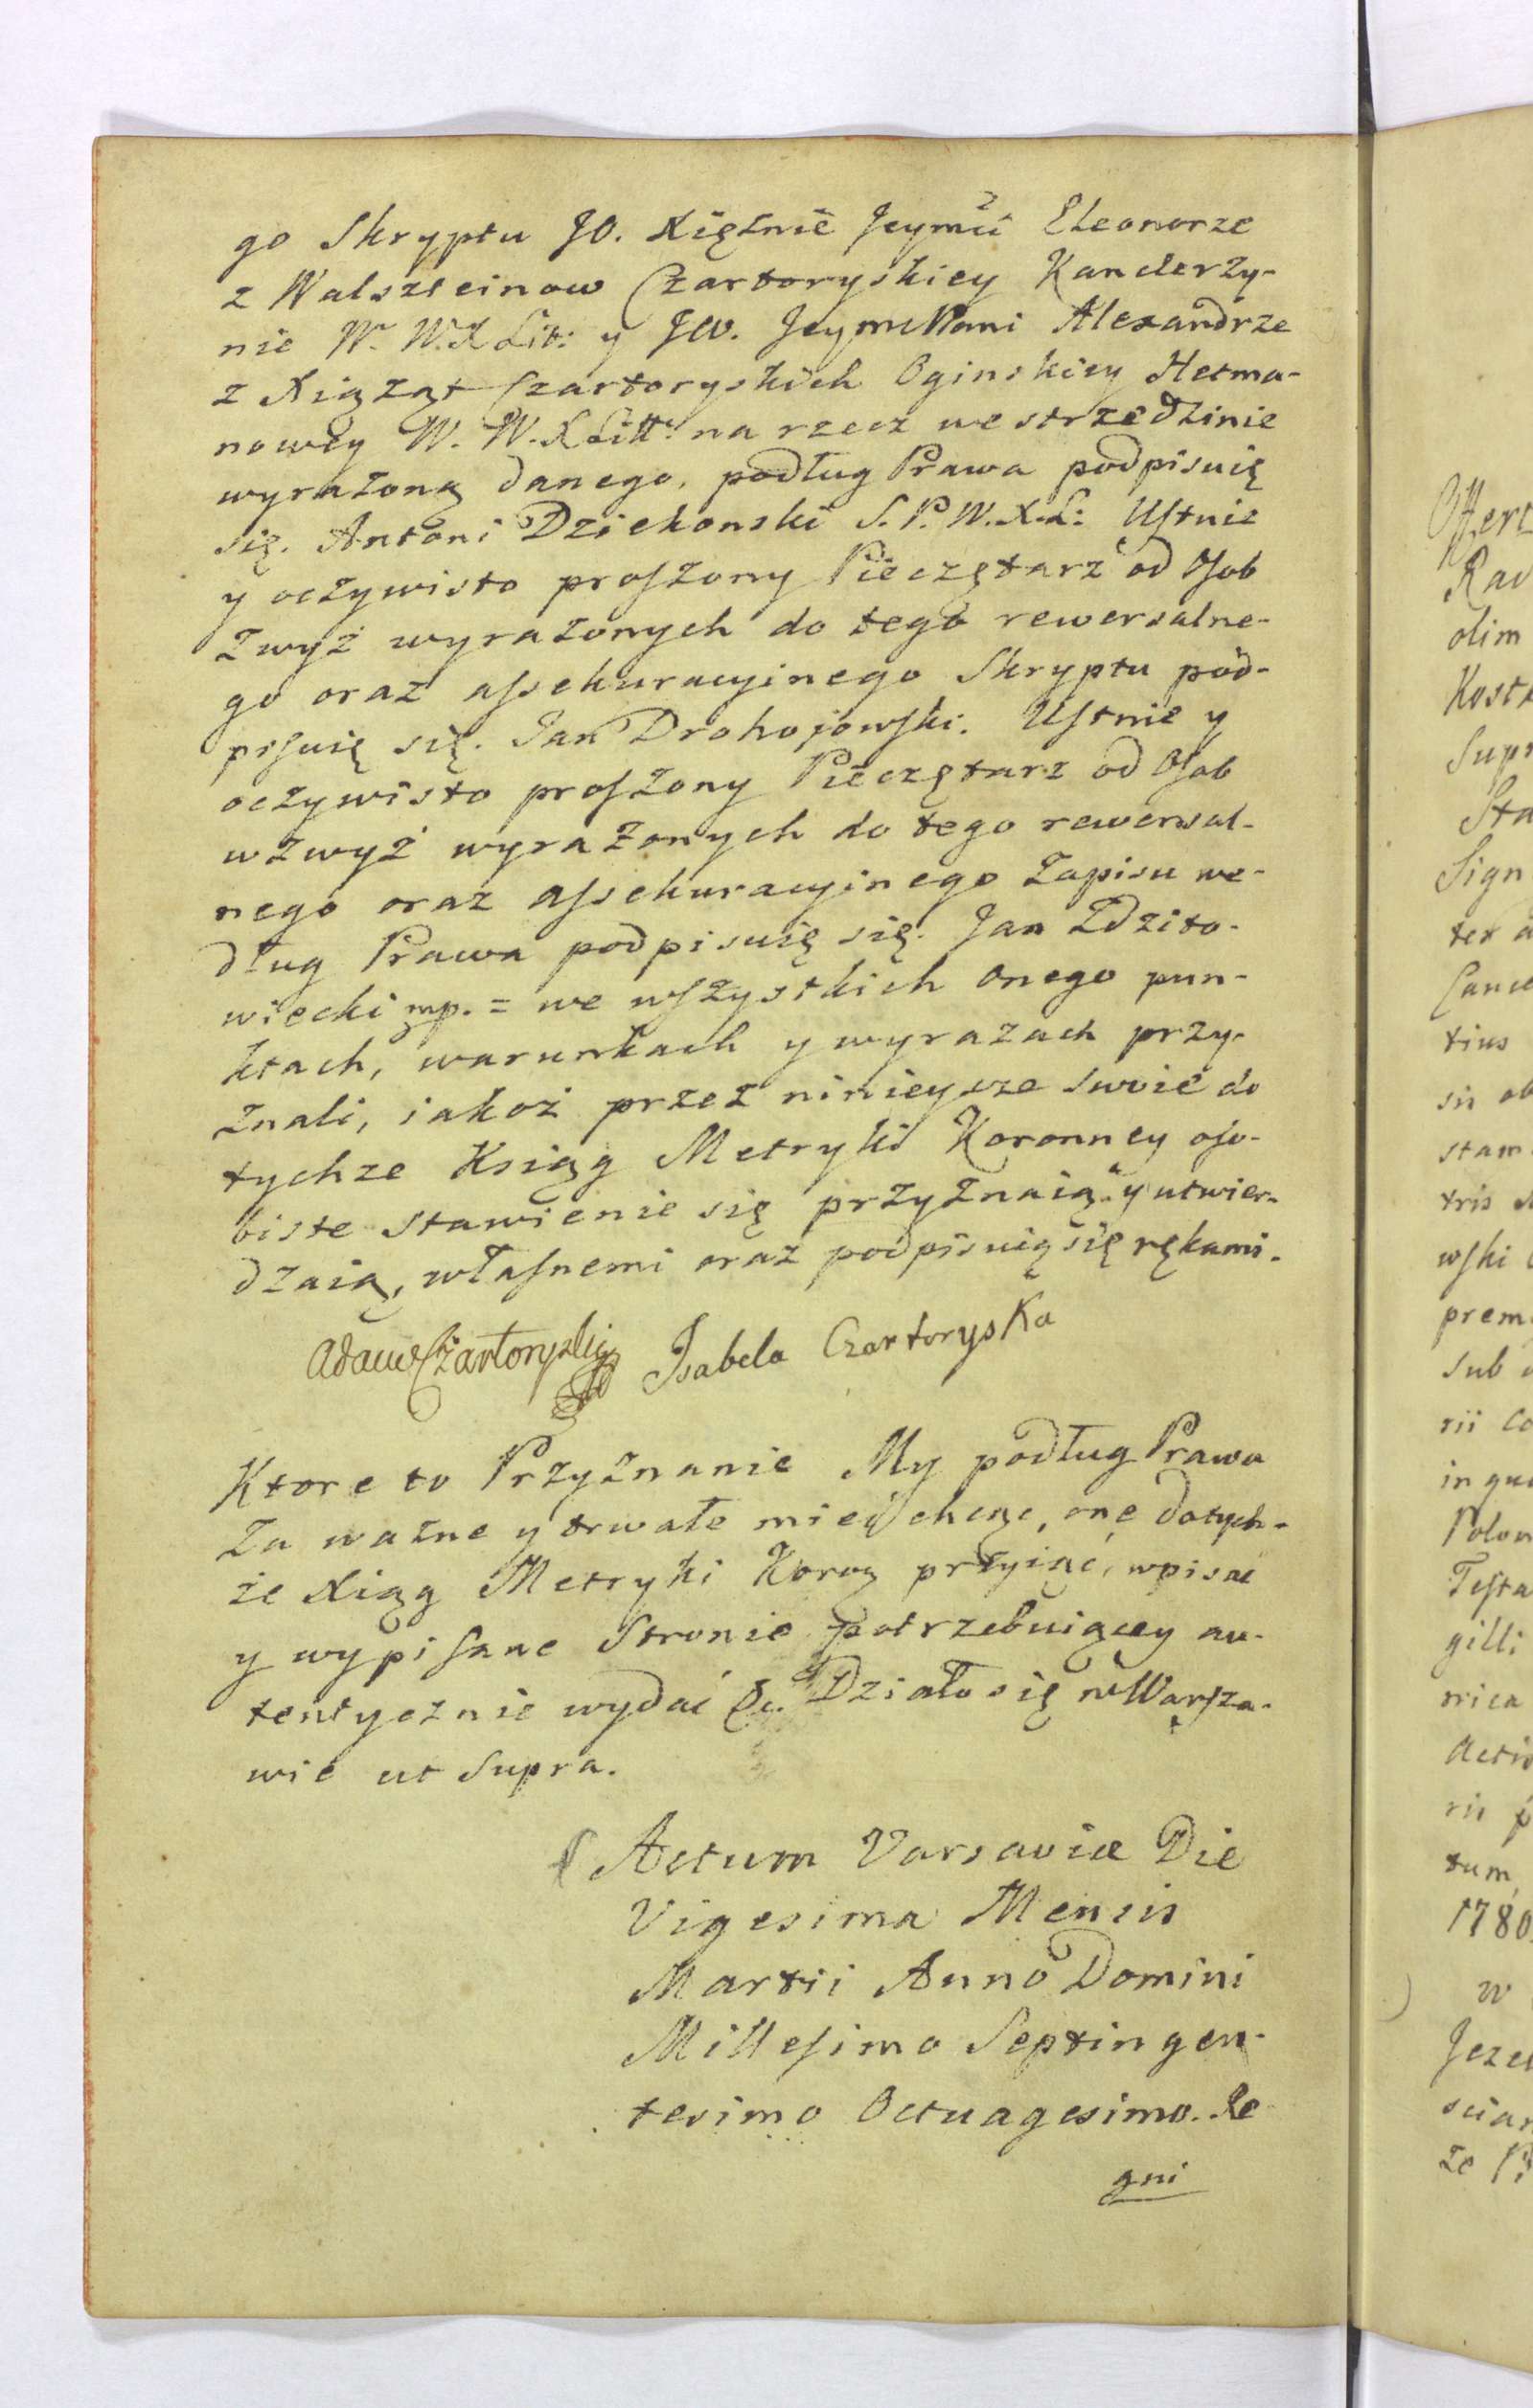 go Skryptu JO. Xiężnie Jeymci Eleonorze
z Walszteinow Czartoryskiey Kanclerzy-
nie W. W. X Lit: y JW. Jeymć Pani Alexandrze
z Xiążąt Czartoryskich Oginskiey Hetma-
nowey W. W. X Litt: na rzecz we strzedzinie
wyrażoną danego, podług Prawa podpisuię
się. Antoni Dziekonski S. P. W. X. L: Ustnie
y oczywisto proszony Pieczętarz od Osob
zwyż wyrażonych do tego rewersalne-
go oraz assekuracyinego Skryptu pod-
pisuię się. Jan Drohojowski. Ustnie y
oczywisto proszony Pieczętarz od Osob
wzwyż wyrażonych do tego rewersal-
nego oraz assekuracyinego Zapisu we-
dług Prawa podpisuię się. Jan Zdzito-
wiecki mp. = we wszystkich onego pun-
ktach, warunkach y wyrazach przy-
znali, iakoż przez ninieysze swoie do
tychże Ksiąg Metryki Koronney oso-
biste stawienie się przyznaią y utwier-
dzaią, własnemi oraz podpisuią się rękami.
Adam Czartoryski Isabela Czartoryska
Ktore to Przyznanie My podług Prawa
za ważne y trwałe mieć chcąc, one do tych-
że Xiąg Metryki Koroy przyiąć, wpisać
y wypisane Stronie potrzebuiącey au-
tentycznie wydać &c. Działo się w Warsza-
wie ut Supra.
Actum Varsaviæ Die
Vigesima Mensis
Martii Anno Domini
Millesimo Septingen-
tesimo Octuagesimo. Re
gni
Offert
Rad
olim
Kost
Supr
Sta
Sign
ter a
Cance
tius
sis ob
stam
tris
wski
prem
sub
rii Co
in qu
Polon
Testa
gilli
nica
Actis
ris p
tum,
1780
w
Jeze
scia
że